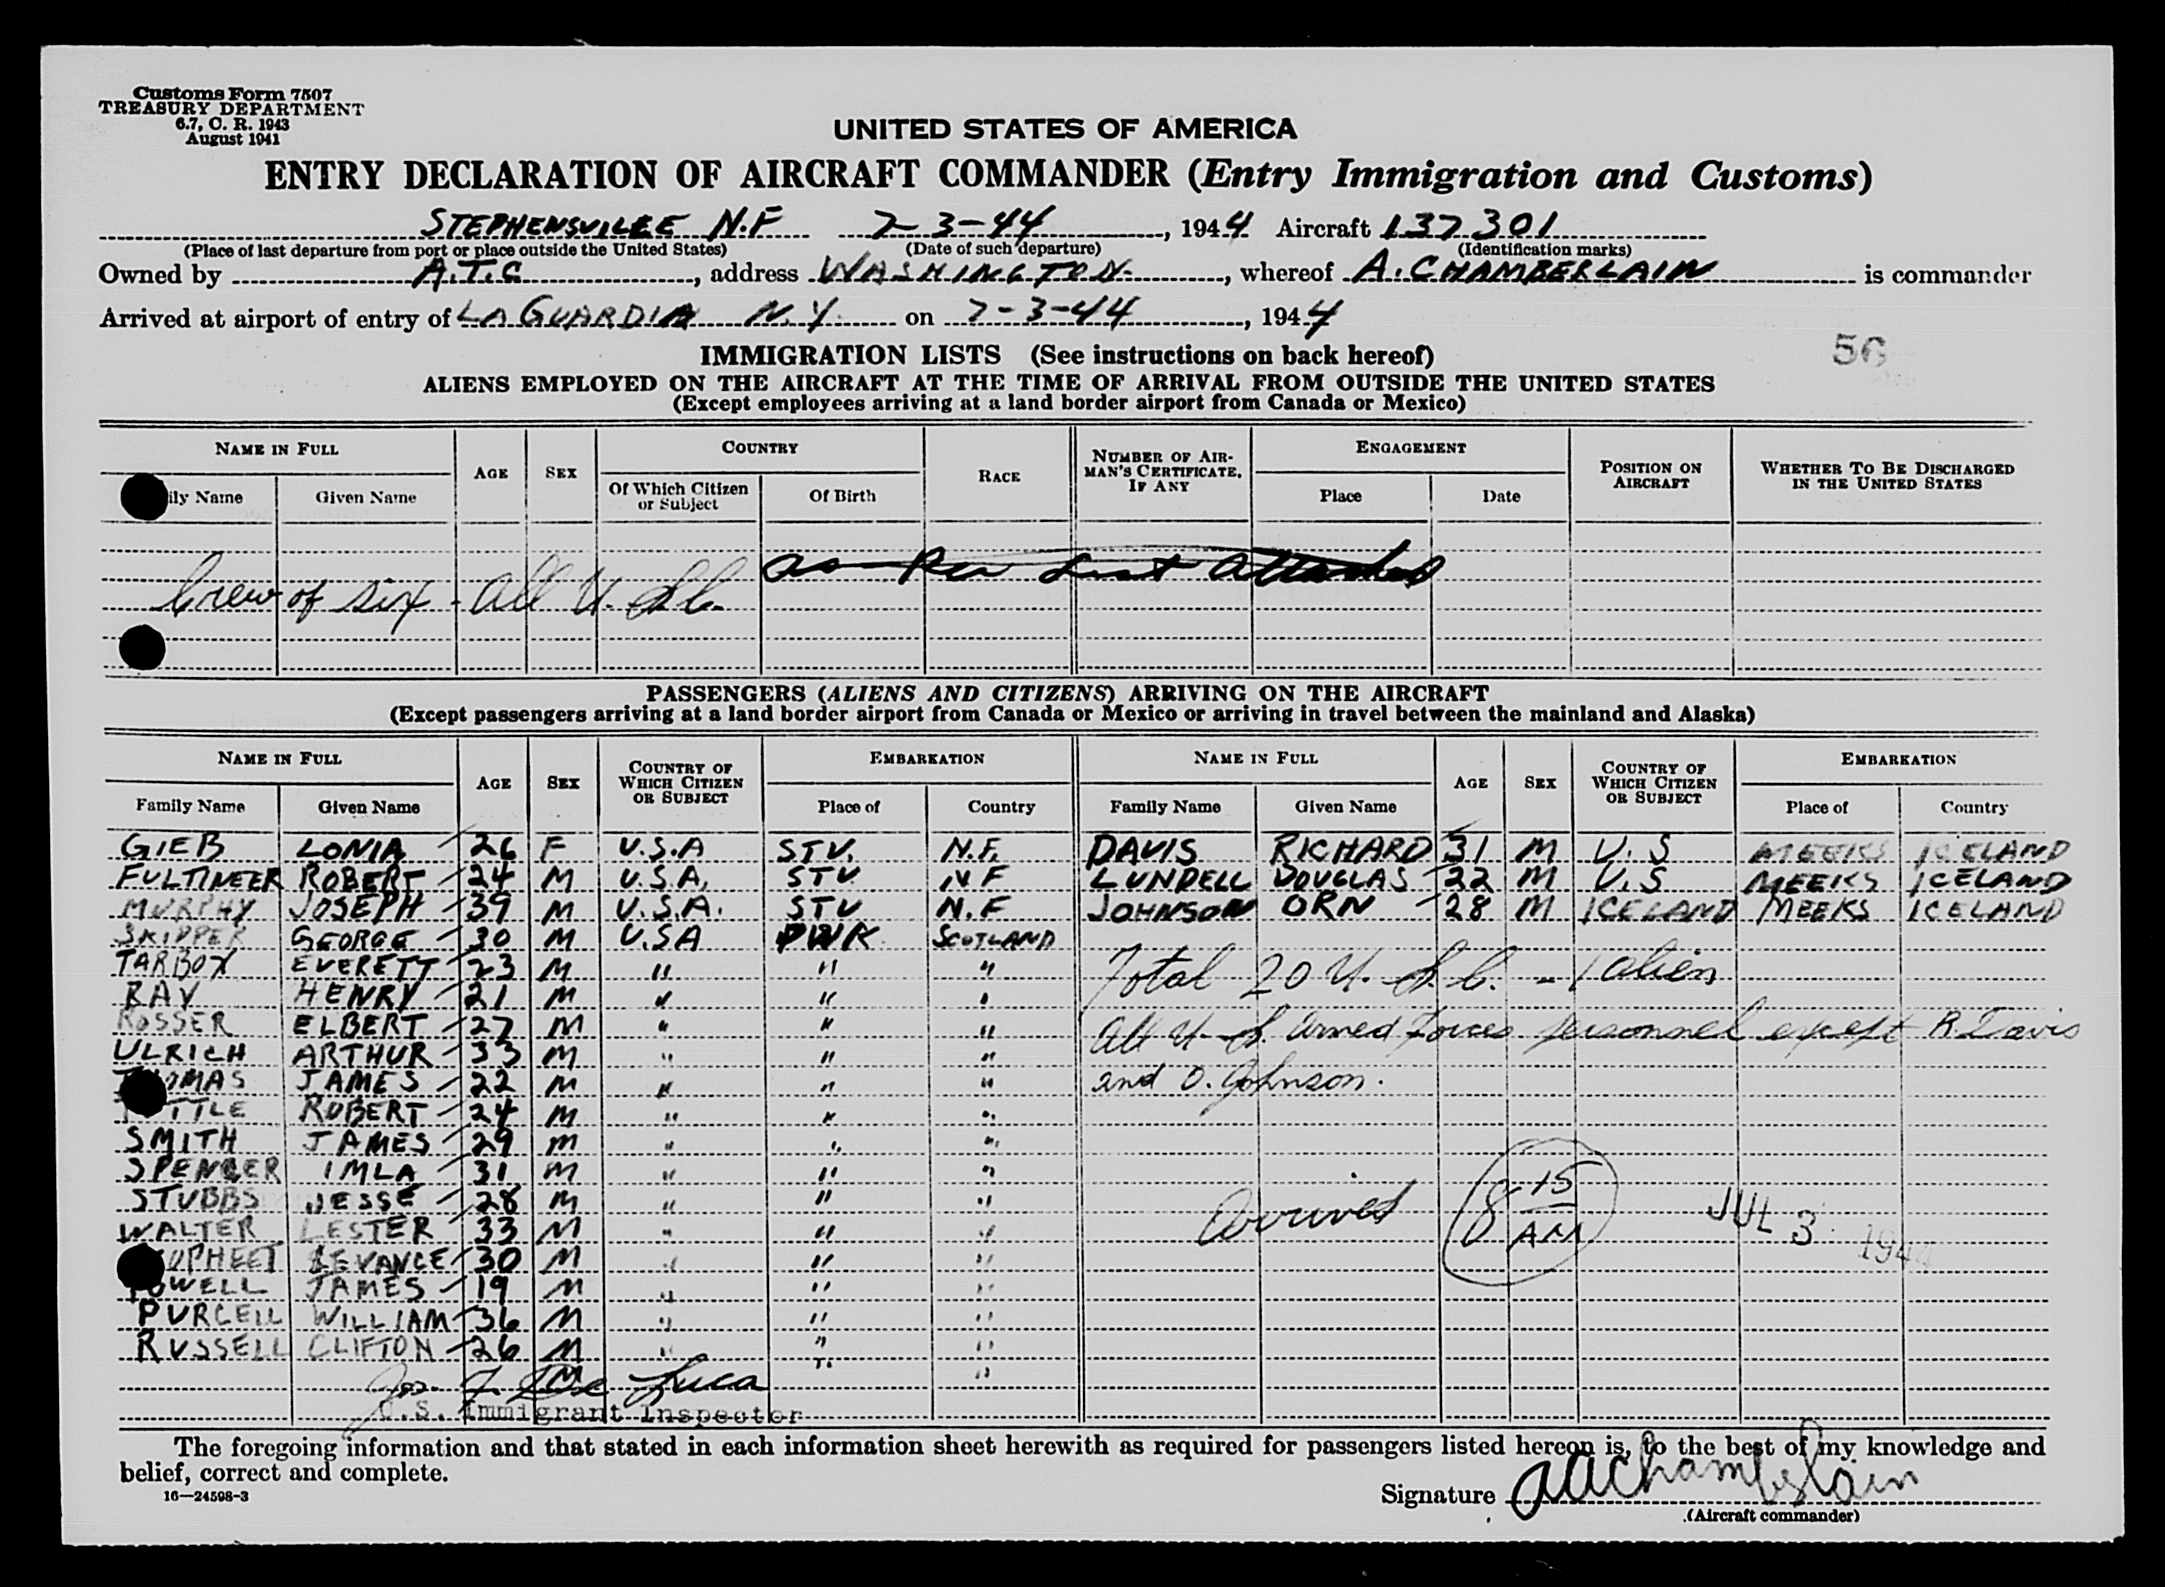 Customs Form 7507
TREASURY DEPARTMENT
6.7, C. R. 1943
August 1941
UNITED STATES OF AMERICA
ENTRY DECLARATION OF AIRCRAFT COMMANDER (Entry Immigration and Customs)
STEPHENSVILLE N.F 7-3-44, 1944 Aircraft 137301
(Place of last departure from port or place outside the United States) (Date of such departure) (Identification marks)
Owned by A.T.C, address WASHINGTON, whereof A. CHAMBERLAIN is commander
Arrived at airport of entry of LA GUARDIA N.Y. on 7-3-44, 1944
56
IMMIGRATION LISTS (See instructions on back hereof)
ALIENS EMPLOYED ON THE AIRCRAFT AT THE TIME OF ARRIVAL FROM OUTSIDE THE UNITED STATES
(Except employees arriving at a land border airport from Canada or Mexico)
NAME IN FULL AGE SEX COUNTRY RACE NUMBER OF AIR-MAN'S CERTIFICATE, IF ANY ENGAGEMENT POSITION ON AIRCRAFT WHETHER TO BE DISCHARGED IN THE UNITED STATES
ily Name Given Name Of Which Citizen or Subject Of Birth Place Date
as Per List Attached
Crew of six - all U.S.C.
PASSENGERS (ALIENS AND CITIZENS) ARRIVING ON THE AIRCRAFT
(Except passengers arriving at a land border airport from Canada or Mexico or arriving in travel between the mainland and Alaska)
NAME IN FULL AGE SEX COUNTRY OF WHICH CITIZEN OR SUBJECT EMBARKATION NAME IN FULL AGE SEX COUNTRY OF WHICH CITIZEN OR SUBJECT EMBARKATION
Family Name Given Name Place of Country Family Name Given Name Place of Country
GIEB LONIA 26 F U.S.A STV. N.F. DAVIS RICHARD 31 M U.S MEEKS ICELAND
FULTINEER ROBERT 24 M U.S.A. STV N F LUNDELL DOUGLAS 22 M U.S MEEKS ICELAND
MURPHY JOSEPH 39 M U.S.A. STV N.F JOHNSON ORN 28 M ICELAND MEEKS ICELAND
SKIPPER GEORGE 30 M U.SA PWK SCOTLAND
TARBOX EVERETT 23 M " " " Total 20 U.S.C. - 1 alien
RAY HENRY 21 M " " "
ROSSER ELBERT 27 M " " " All U.S. Armed Forces personnel except R Davis
ULRICH ARTHUR 33 M " " "
OMAS JAMES 22 M " " " and O. Johnson.
TTLE ROBERT 24 M " " "
SMITH JAMES 29 M " " "
SPENCER IMLA 31 M " " "
STUBBS JESSE 28 M " " " Arrived 8 15 AM JUL 3 1944
WALTER LESTER 33 M " " "
UPHEET LEVANCE 30 M " " "
OWELL JAMES 19 M " " "
PURCELL WILLIAM 36 M " " "
RUSSELL CLIFTON 26 M " " "
" "
Jos. F. De Luca
U.S. Immigrant Inspector
The foregoing information and that stated in each information sheet herewith as required for passengers listed hereon is, to the best of my knowledge and
belief, correct and complete.
16—24598-3
Signature AAChamberlain
(Aircraft commander)